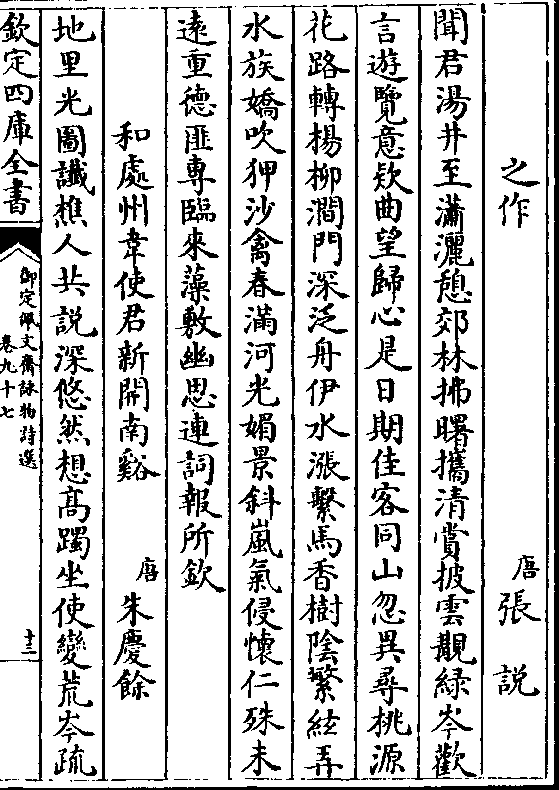 之作
唐 張說
聞君湯井至瀟灑憩郊林拂曙攜清賞披雲覯綠岑歡
言遊覽意欵曲望歸心是日期佳客同山忽異尋桃源
花路轉楊柳澗門深泛舟伊水漲繫馬香樹陰繁絃弄
水族嬌吹狎沙禽春滿河光媚景斜嵐氣侵懷仁殊未
遠重德匪專臨來藻敷幽思連詞報所欽
和處州韋使君新開南谿
唐 朱慶餘
地里光圖讖樵人共說深悠然想高躅坐使變荒岑疏
欽定四庫全書
御定佩文齋詠物詩選
卷九十七
十三